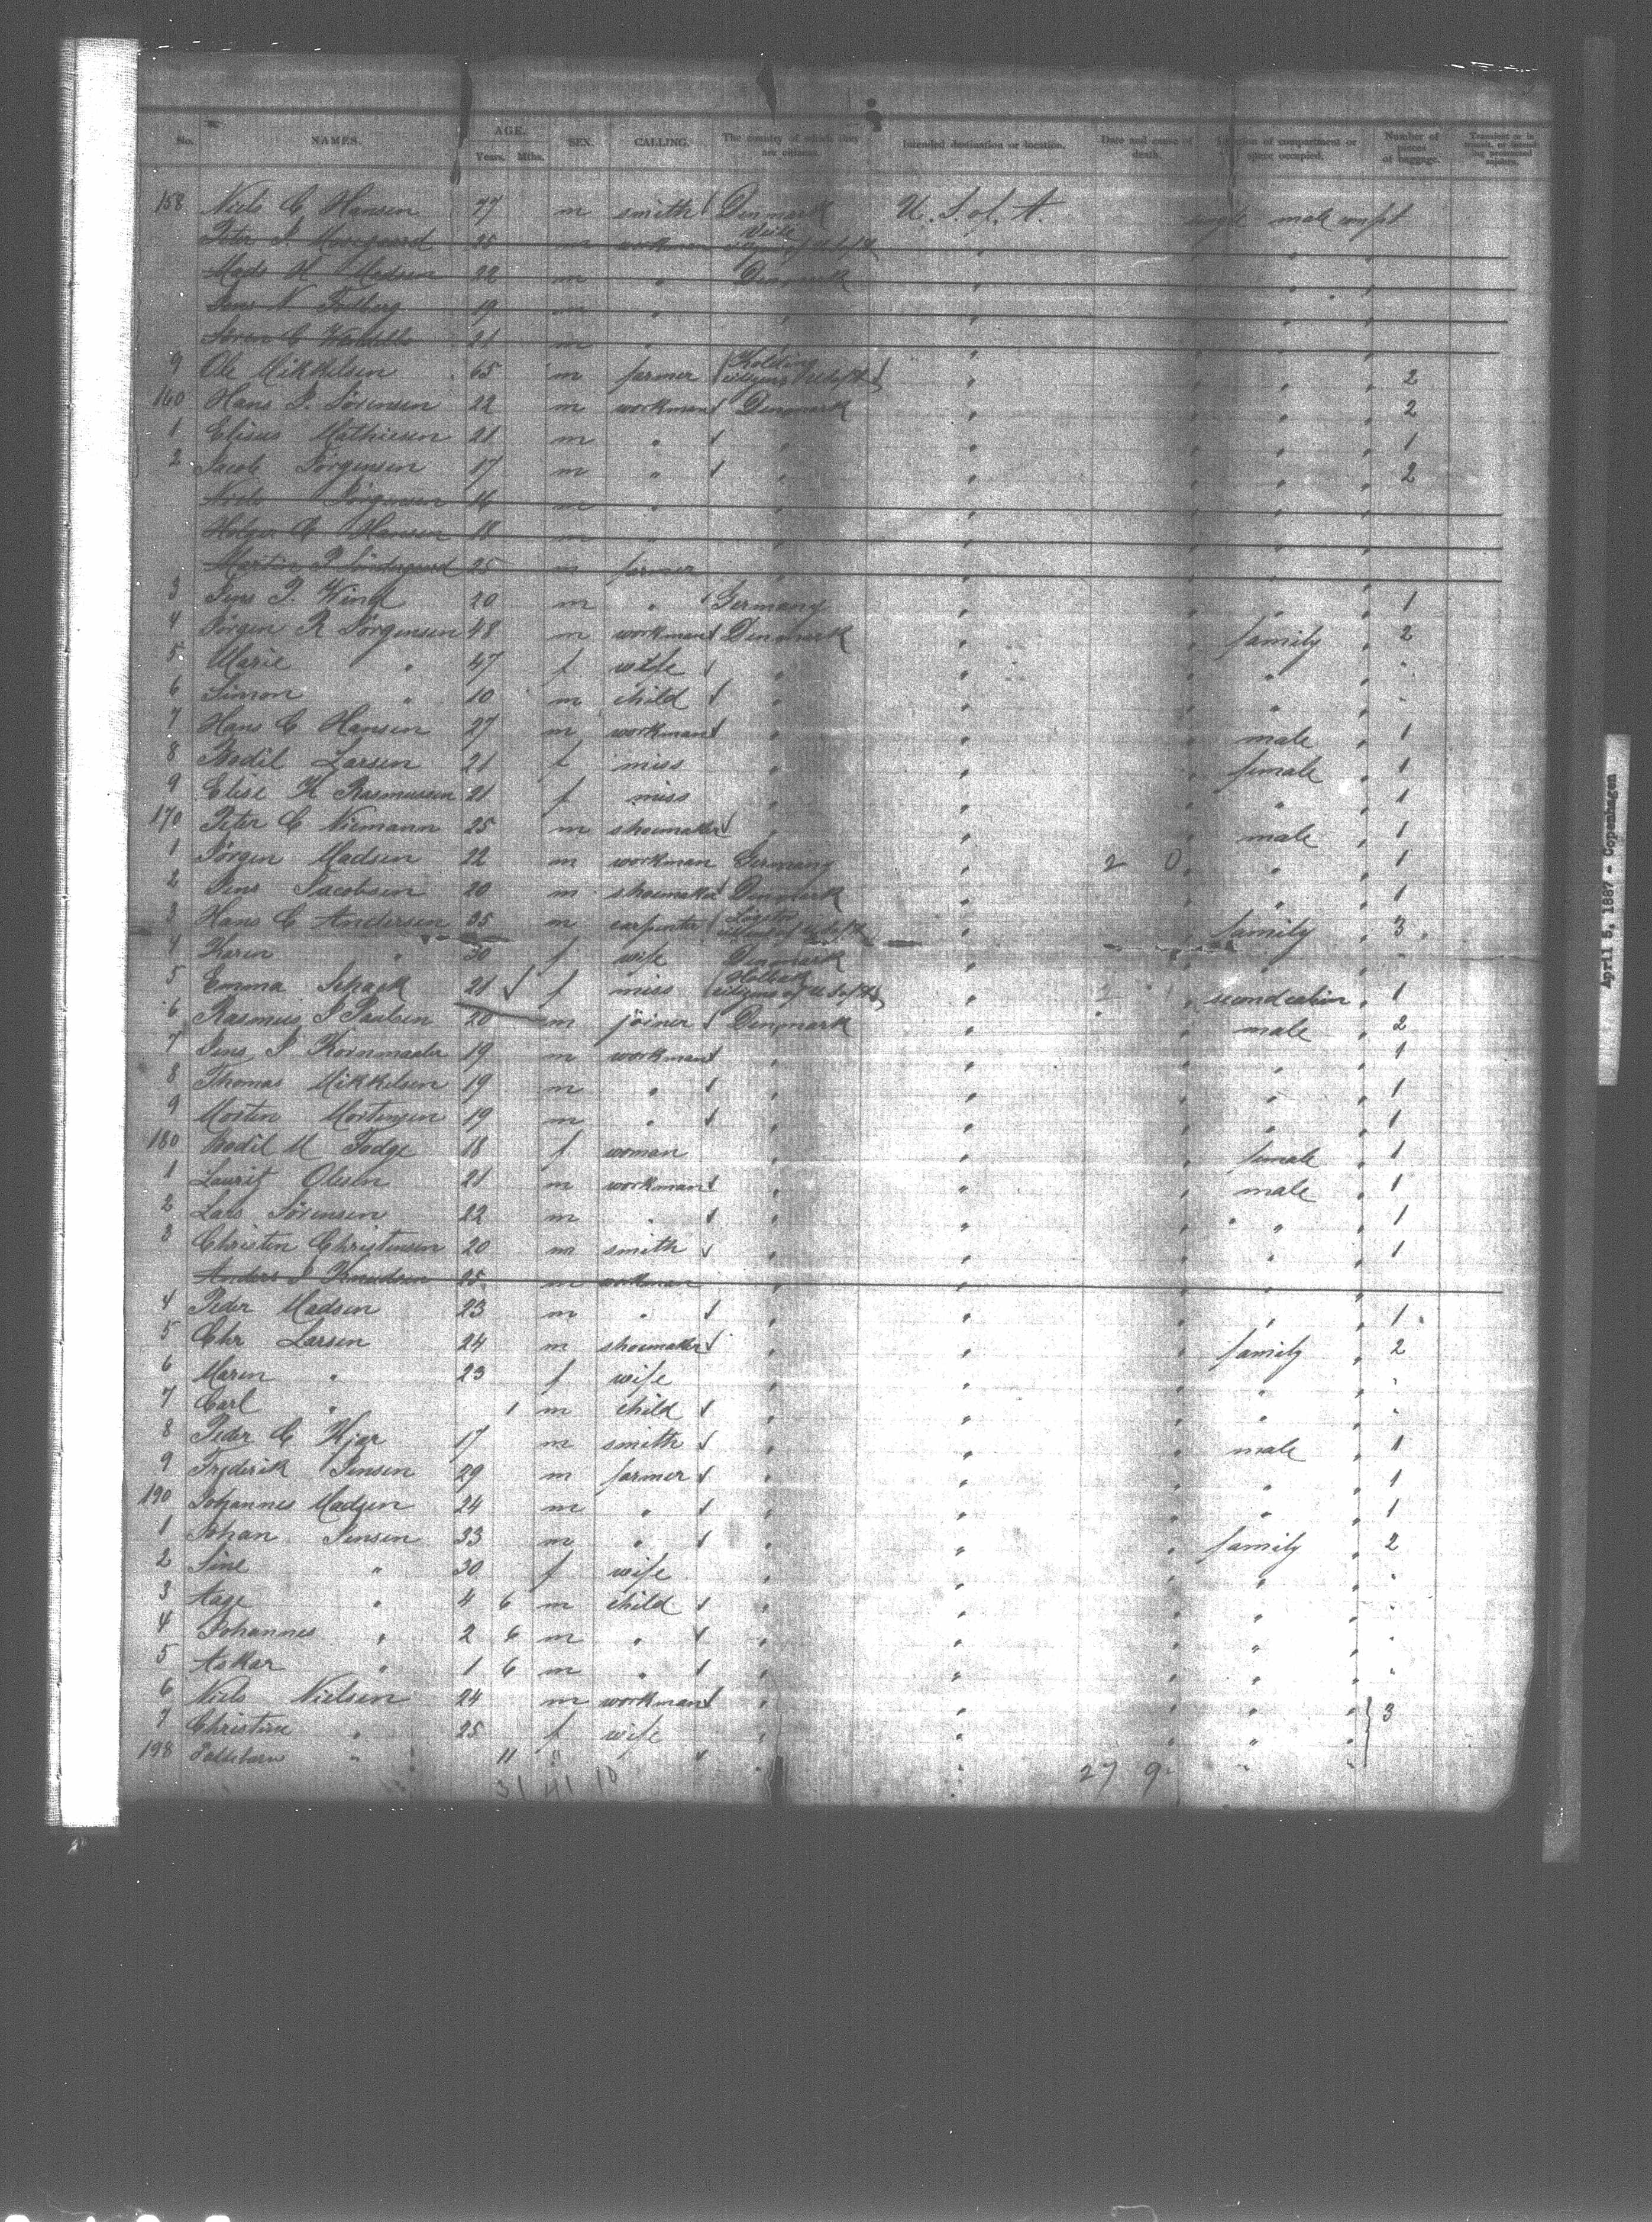 No. NAMES. AGE. Years. Mths. SEX. CALLING. The country of which they are citizens. Intended destination or location. Date and cause of death. Location of compartment or space occupied. Number of pieces of baggage. Transient or in transit, or intending protracted sojourn.
158 Niels C Hansen 27 m smith Denmark U. S. of A. single male compt
Peter S. 25 m workman Veile citizens of U.S. of A. " " "
Mads H Madsen 22 m " Denmark " " "
Jens N 19 m " " " " "
Sören C 21 m " " " " "
9 Ole Mikkelsen 65 m farmer Kolding citizens U.S. of A. " " " 2
160 Hans P. Sörensen 22 m workman Denmark " " " 2
1 Elisus Mathiesen 21 m " " " " " 1
2 Jacob Jörgensen 17 m " " " " " 2
Niels Jörgensen 16 m " " " " "
Holger C Hansen 18 m " " " " "
Martin P Söndergaard 25 m farmer " " " "
3 Jens P. Wind 20 m " Germany " " " 1
4 Jörgen R Jörgensen 48 m workman Denmark " family " 2
5 Marie " 47 f wife " " " " "
6 Simon " 10 m child " " " " "
7 Hans C Hansen 27 m workman " " male " 1
8 Bodil Larsen 21 f miss " " female " 1
9 Elise K Rasmussen 21 f miss " " " " 1
170 Peter C Niemann 25 m shoemaker " " male " 1
1 Jörgen Madsen 22 m workman Germany " 2 0 " " 1
2 Jens Jacobsen 20 m shoemaker Denmark " " " 1
3 Hans C Andersen 35 m carpenter Lögstör citizens of U.S. of A. " family " 3
4 Karen " 30 f wife Denmark " " " "
5 Emma Schack 21 f miss Holbæk citizens of U.S. of A. " second cabin " 1
6 Rasmus P Paulsen 20 m joiner Denmark " male " 2
7 Jens P Kornmaaler 19 m workman " " " " 1
8 Thomas Mikkelsen 19 m " " " " " 1
9 Morten Mortensen 19 m " " " " " 1
180 Bodil M Fodge 18 f woman " " female " 1
1 Laurit Olesen 21 m workman " " male " 1
2 Lars Sörensen 22 m " " " " " 1
3 Christen Christensen 20 m smith " " " " 1
Anders P Knudsen 25 m workman " " " "
4 Peder Madsen 23 m " " " " " 1
5 Chr Larsen 24 m shoemaker " " family " 2
6 Maren " 23 f wife " " " " "
7 Carl " 1 m child " " " " "
8 Peder C Kjær 17 m smith " " male " 1
9 Frederik Jensen 29 m farmer " " " " 1
190 Johannes Madsen 24 m " " " " " 1
1 Johan Jensen 33 m " " " family " 2
2 Sine " 30 f wife " " " " "
3 Aage " 4 6 m child " " " " "
4 Johannes " 2 6 m " " " " " "
5 Askar " 1 6 m " " " " " "
6 Niels Nielsen 24 m workman " " " 3
7 Christine " 25 f wife " " "
198 " 11 " " " " "
31 41 10 27 9
April 5, 1887 - Copenhagen